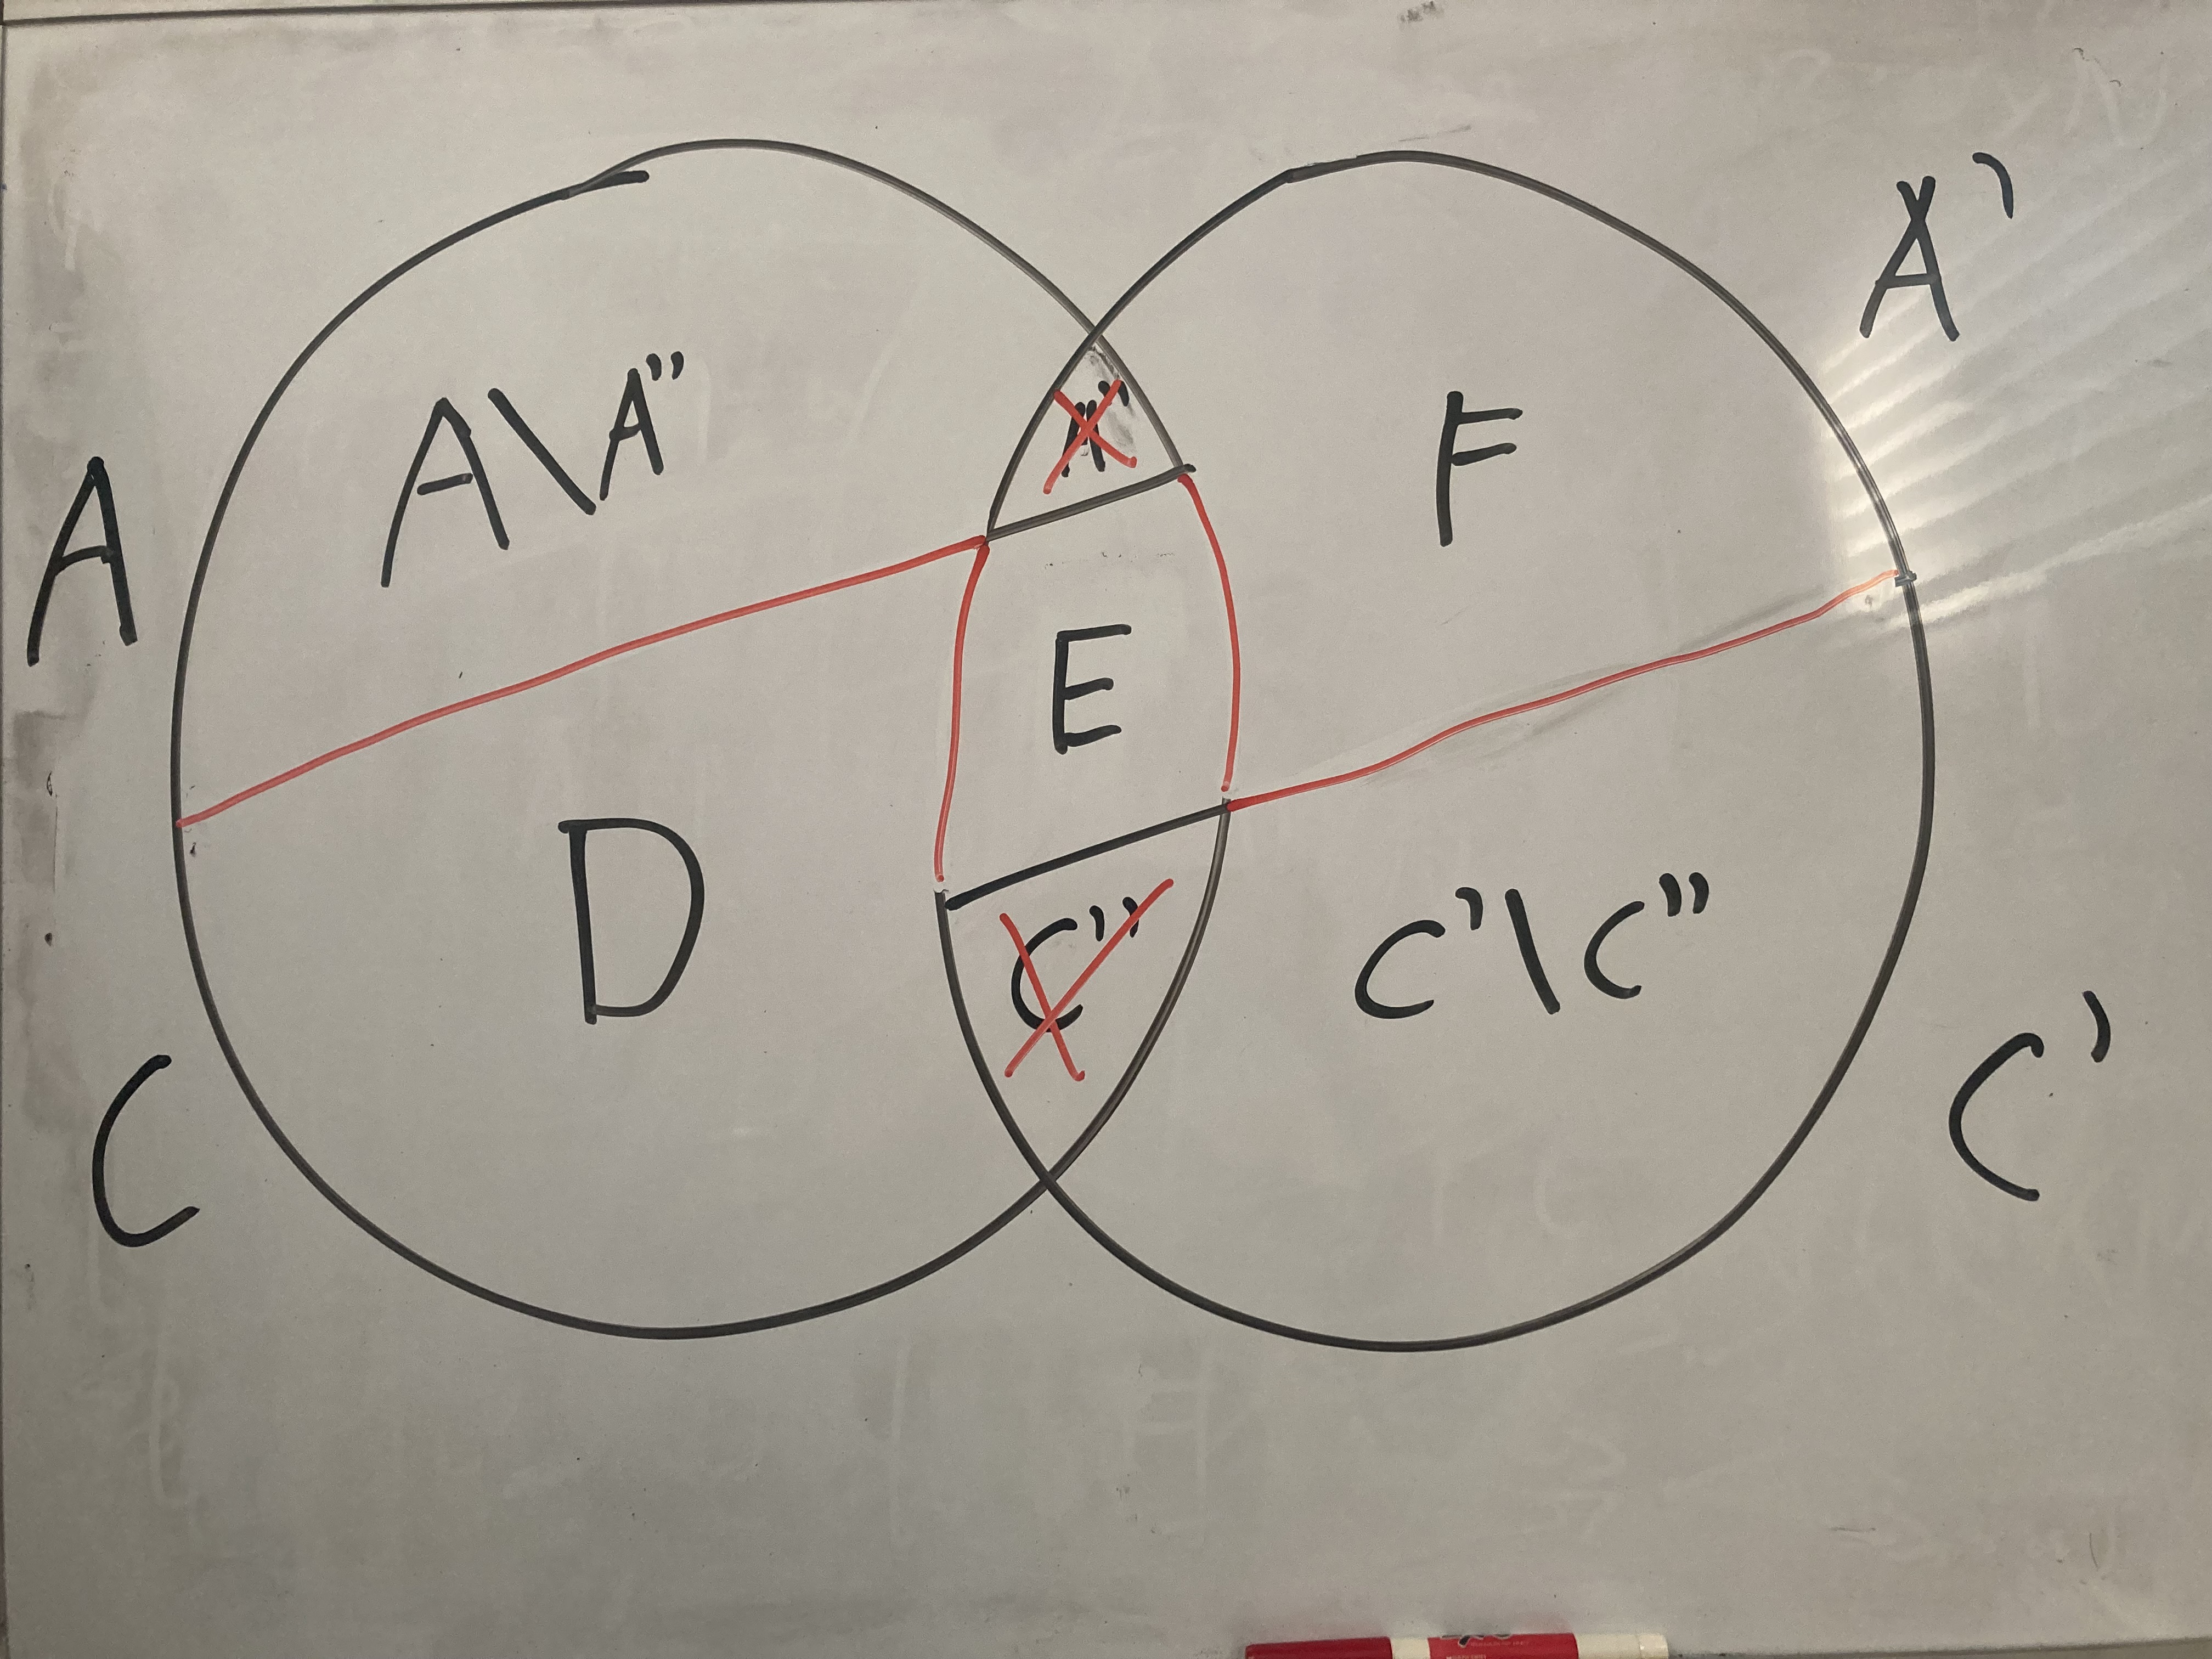 A
A\A"
A"
F
A'
E
D
C"
C'\C"
C
C'